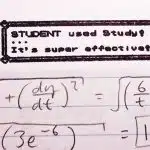 STUDENT used Study!
...
It's super effective!
+ (dy/dt)² = √(6/t
(3e⁻⁶) =